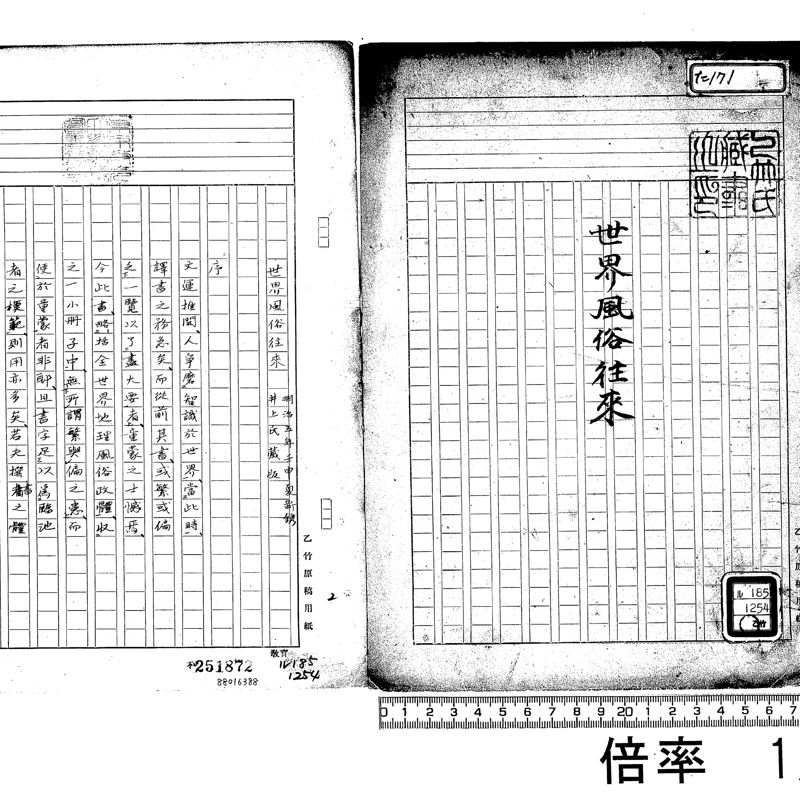 た171
乙竹氏
藏書
世界風俗往來
ル 185
1254
(乙竹)
世界風俗往來
明治五年壬申夏新鐫
井上氏藏版
序
文運推開、人爭磨智識於世界、當此時、
譯書之務急矣、而從前其書或繁或偏
之一覽以了盡大要者、童蒙之士憾焉、
今此書、略括全世界地理風俗政體、収
之一小冊子中、無所謂繁與偏之患、而
便於童蒙者非耶、且書字足以爲臨池
者之模範則用亦多矣、若夫撰書之體
乙竹原稿用紙
2
251872
88016388
教育
ル185
1254
0 1 2 3 4 5 6 7 8 9 20 1 2 3 4 5 6 7
倍率 1